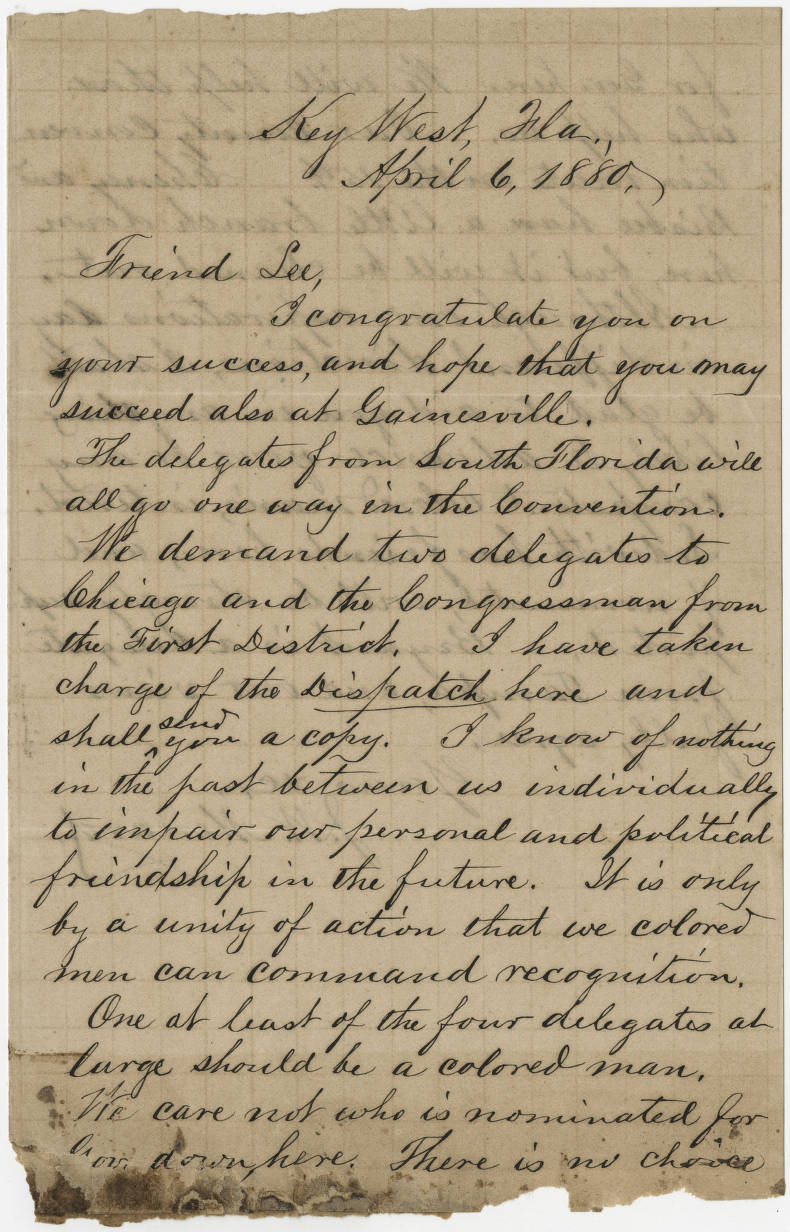 Key West, Fla.,
April 6, 1880,
Friend Lee,
I congratulate you on
your success, and hope that you may
succeed also at Gainesville.
The delegates from South Florida will
all go one way in the Convention.
We demand two delegates to
Chicago and the Congressman from
the First District. I have taken
charge of the Dispatch here and
shall send you a copy. I know of nothing
in the past between us individually
to impair our personal and political
friendship in the future. It is only
by a unity of action that we colored
men can command recognition.
One at least of the four delegates at
large should be a colored man.
We care not who is nominated for
Gov. down here. There is no choice